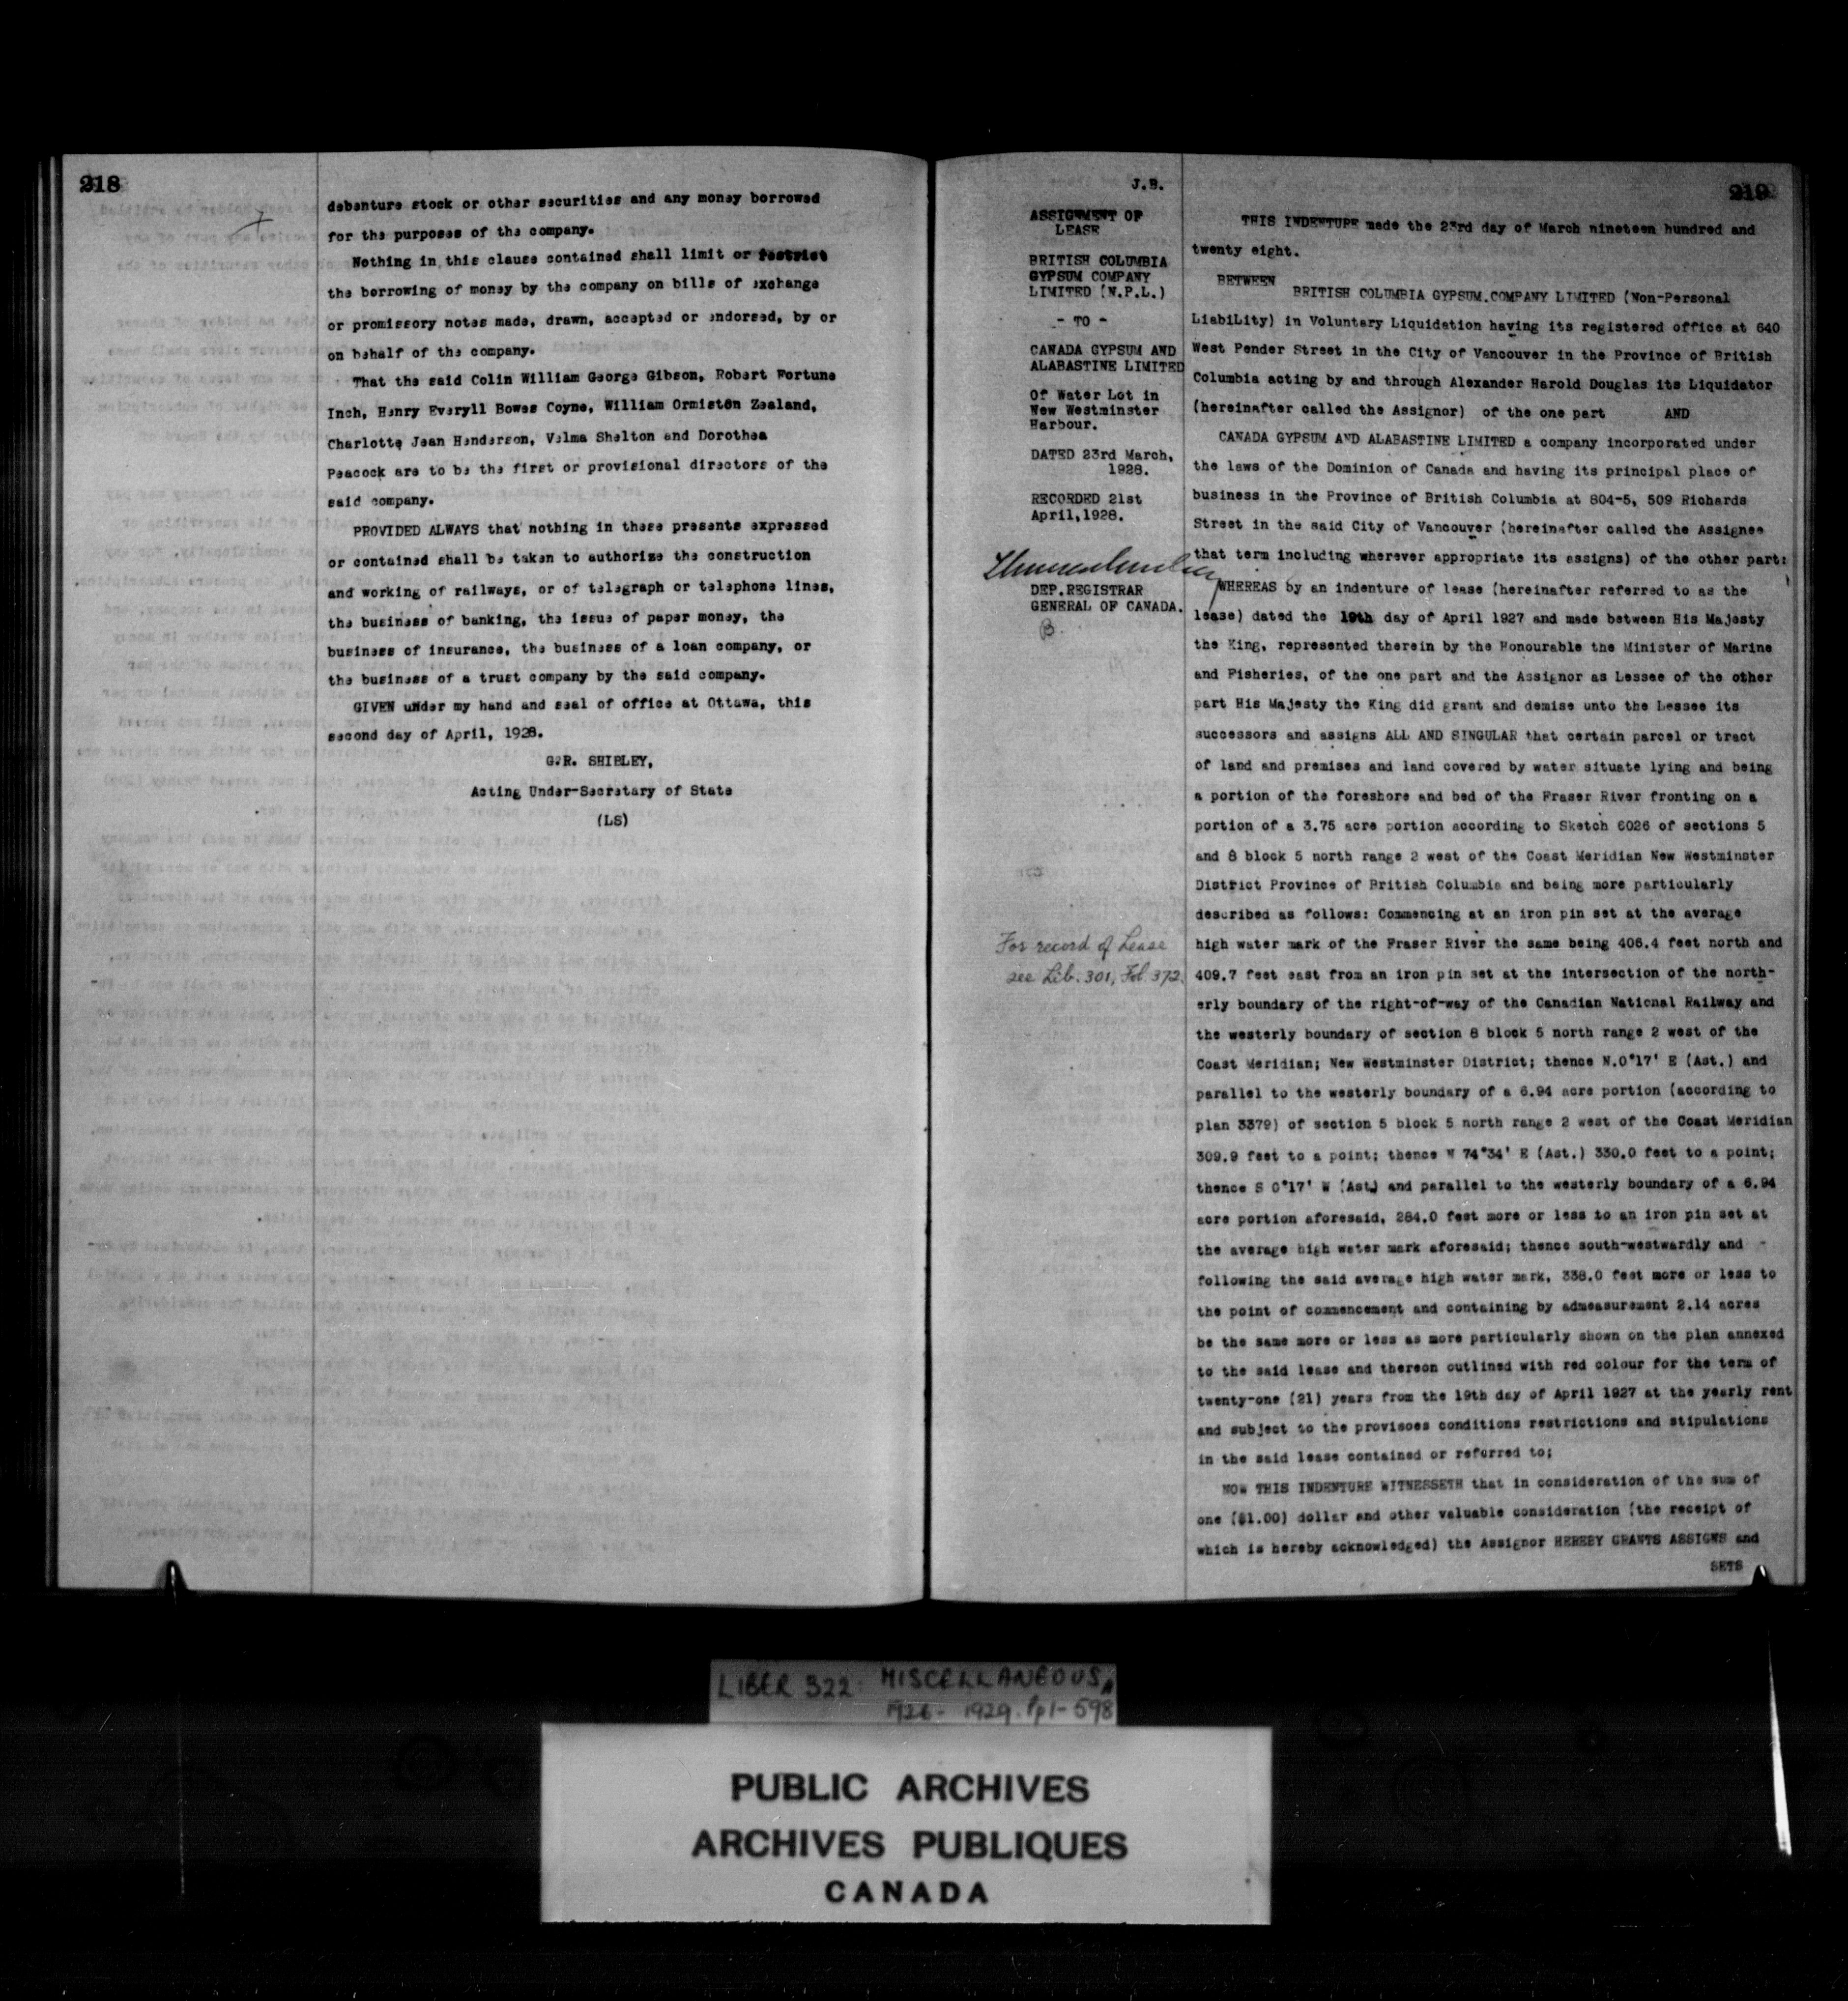 218
debenture stock or other securities and any money borrowed
for the purposes of the company.
Nothing in this clause contained shall limit or restrict
the borrowing of money by the company on bills of exchange
or promissory notes made, drawn, accepted or endorsed, by or
on behalf of the company.
That the said Colin William George Gibson, Robert Fortune
Inch, Henry Everyll Bowes Coyne, William Ormiston Zealand,
Charlotte Jean Henderson, Velma Shelton and Dorothea
Peacock are to be the first or provisional directors of the
said company.
PROVIDED ALWAYS that nothing in these presents expressed
or contained shall be taken to authorize the construction
and working of railways, or of telegraph or telephone lines,
the business of banking, the issue of paper money, the
business of insurance, the business of a loan company, or
the business of a trust company by the said company.
GIVEN under my hand and seal of office at Ottawa, this
second day of April, 1928.
G.R. SHIBLEY,
Acting Under-Secretary of State
(LS)
J.B.
219
ASSIGNMENT OF
LEASE
BRITISH COLUMBIA
GYPSUM COMPANY
LIMITED (N.P.L.)
- TO -
CANADA GYPSUM AND
ALABASTINE LIMITED
Of Water Lot in
New Westminster
Harbour.
DATED 23rd March,
1928.
RECORDED 21st
April,1928.
DEP.REGISTRAR
GENERAL OF CANADA.
B.
For record of Lease
see Lib. 301, Fol. 372.
THIS INDENTURE made the 23rd day of March nineteen hundred and
twenty eight.
BETWEEN
BRITISH COLUMBIA GYPSUM.COMPANY LIMITED (Non-Personal
LiabiLity) in Voluntary Liquidation having its registered office at 640
West Pender Street in the City of Vancouver in the Province of British
Columbia acting by and through Alexander Harold Douglas its Liquidator
(hereinafter called the Assignor) of the one part AND
CANADA GYPSUM AND ALABASTINE LIMITED a company incorporated under
the laws of the Dominion of Canada and having its principal place of
business in the Province of British Columbia at 804-5, 509 Richards
Street in the said City of Vancouver (hereinafter called the Assignee
that term including wherever appropriate its assigns) of the other part:
WHEREAS by an indenture of lease (hereinafter referred to as the
lease) dated the 19th day of April 1927 and made between His Majesty
the King, represented therein by the Honourable the Minister of Marine
and Fisheries, of the one part and the Assignor as Lessee of the other
part His Majesty the King did grant and demise unto the Lessee its
successors and assigns ALL AND SINGULAR that certain parcel or tract
of land and premises and land covered by water situate lying and being
a portion of the foreshore and bed of the Fraser River fronting on a
portion of a 3.75 acre portion according to Sketch 6026 of sections 5
and 8 block 5 north range 2 west of the Coast Meridian New Westminster
District Province of British Columbia and being more particularly
described as follows: Commencing at an iron pin set at the average
high water mark of the Fraser River the same being 406.4 feet north and
409.7 feet east from an iron pin set at the intersection of the north-
erly boundary of the right-of-way of the Canadian National Railway and
the westerly boundary of section 8 block 5 north range 2 west of the
Coast Meridian; New Westminster District; thence N.0°17' E (Ast.) and
parallel to the westerly boundary of a 6.94 acre portion (according to
plan 3379) of section 5 block 5 north range 2 west of the Coast Meridian
309.9 feet to a point; thence N 74°34' E (Ast.) 330.0 feet to a point;
thence S 0°17' W (Ast.) and parallel to the westerly boundary of a 6.94
acre portion aforesaid, 284.0 feet more or less to an iron pin set at
the average high water mark aforesaid; thence south-westwardly and
following the said average high water mark, 338.0 feet more or less to
the point of commencement and containing by admeasurement 2.14 acres
be the same more or less as more particularly shown on the plan annexed
to the said lease and thereon outlined with red colour for the term of
twenty-one (21) years from the 19th day of April 1927 at the yearly rent
and subject to the provisoes conditions restrictions and stipulations
in the said lease contained or referred to;
NOW THIS INDENTURE WITNESSETH that in consideration of the sum of
one ($1.00) dollar and other valuable consideration (the receipt of
which is hereby acknowledged) the Assignor HEREBY GRANTS ASSIGNS and
SETS
LIBER 322: MISCELLANEOUS,
1926- 1929. Pp1-598
PUBLIC ARCHIVES
ARCHIVES PUBLIQUES
CANADA